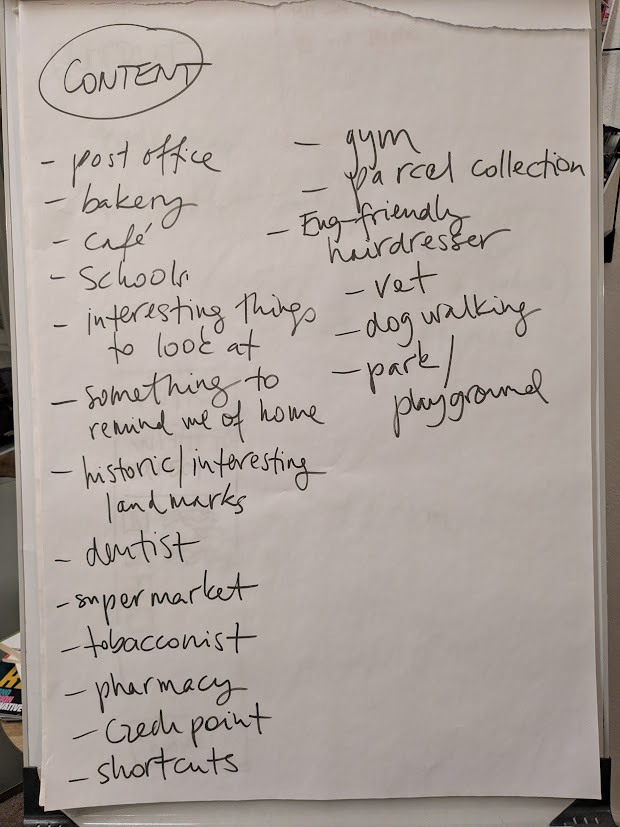 CONTENT
- post office
- bakery
- café
- schools
- interesting things
to look at
- something to
remind me of home
- historic/interesting
landmarks
- dentist
- supermarket
- tobacconist
- pharmacy
- Czech point
- shortcuts
- gym
- parcel collection
- Eng-friendly
hairdresser
- vet
- dog walking
- park/
playground